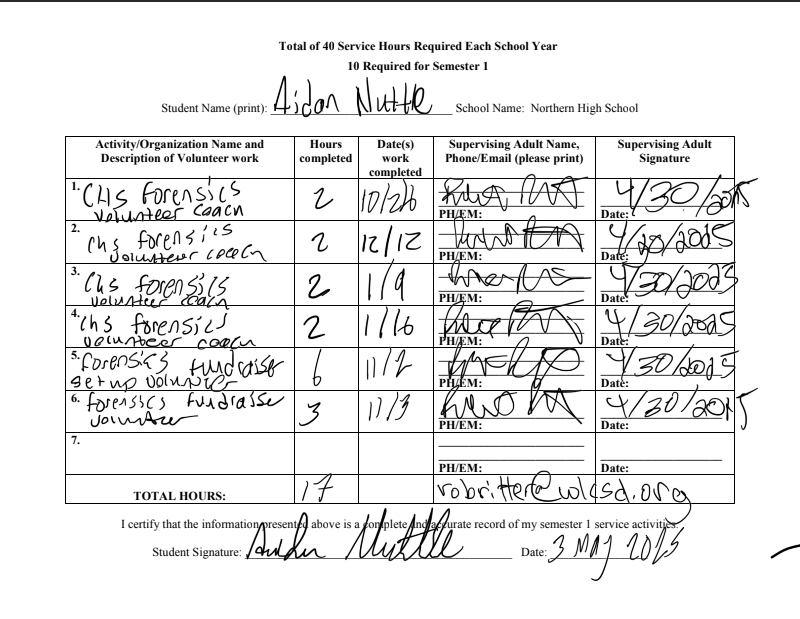 Total of 40 Service Hours Required Each School Year
10 Required for Semester 1
Student Name (print): Aidan Nuttle School Name: Northern High School
Activity/Organization Name and Description of Volunteer work
Hours completed
Date(s) work completed
Supervising Adult Name, Phone/Email (please print)
Supervising Adult Signature
1. CHS forensics volunteer coach 2 10/26 PH/EM: Date: 4/30/2025
2. Chs forensics volunteer coach 2 12/12 PH/EM: Date: /2025
3. Chs forensics volunteer coach 2 1/9 PH/EM: Date: 4/30/2025
4. Chs forensics volunteer coach 2 1/16 PH/EM: Date: 4/30/2025
5. forensics fundraiser set up volunteer 6 11/2 PH/EM: Date: 4/30/2025
6. forensics fundraiser volunteer 3 11/3 PH/EM: Date: 4/30/2025
7. PH/EM: Date:
TOTAL HOURS: 17 robritter@wlcsd.org
I certify that the information presented above is a complete and accurate record of my semester 1 service activities.
Student Signature: Aidan Nuttle Date: 3 MAY 2025